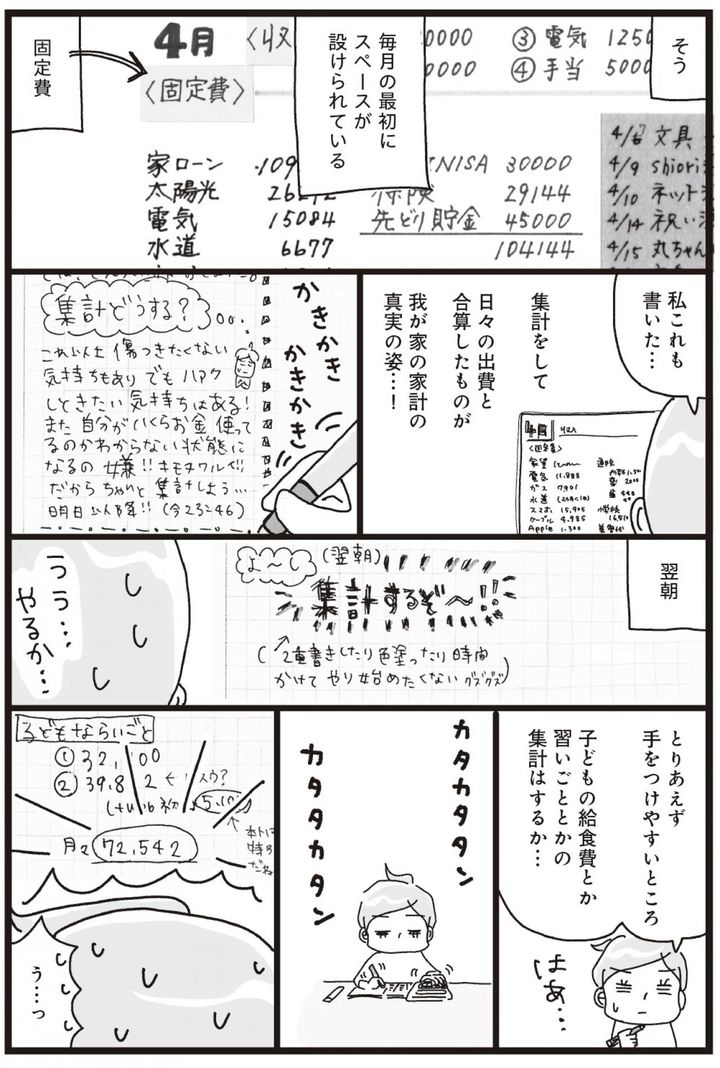 そう
毎月の最初に
スペースが
設けられている
固定費
4月
〈収
0000
0000
③ 電気 1250
④ 手当 5000
〈固定費〉
家ローン
太陽光
電気 15084
水道 6677
NISA 30000
保険 29144
先どり貯金 45000
104144
文具
4/9 shiori
4/10 ネット
4/14 祝い
4/15 丸ちゃん
私これも
書いた…
集計をして
日々の出費と
合算したものが
我が家の家計の
真実の姿…!
4月
〈固定費〉
電気
ガス
水道
スマホ 15,905
ケーブル 4,985
Apple 1,300
かきかき
かきかき
集計どうする?
これ以上傷つきたくない
気持ちもあり でもハアク
しときたい気持ちはある!
また自分がいくらお金使って
るのかわからない状態に
なるの嫌!!キモチワルイ!!
だからちゃんと集計しよう…
明日以降!!(今23:46)
翌朝
よ〜し
(翌朝)
集計するぞ〜!!
(2重書きしたり色塗ったり時間
かけてやり始めたくない グズグズ)
うう…
やるか…
とりあえず
手をつけやすいところ
子どもの給食費とか
習いごととかの
集計はするか…
はぁ…
カタカタタン
カタタカタン
子どもならいごと
①
②
月々 72,542
う…っ